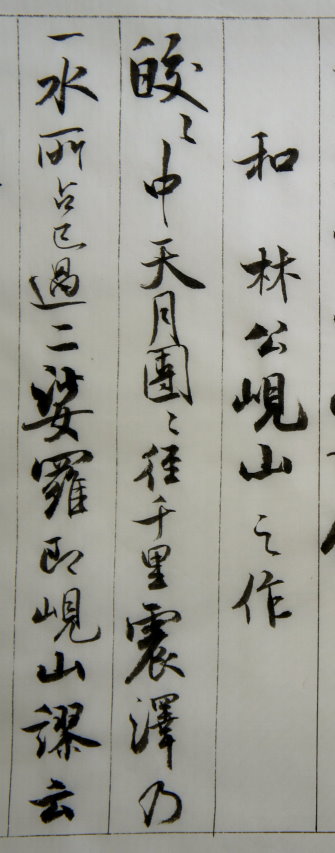 和林公峴山之作
皎〻中天月團〻徑千里震澤乃
一水所占已過二娑羅即峴山謬云